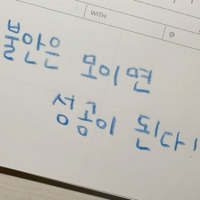 WITH
불안은 모이면
성공이 된다!